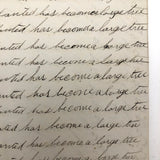 anted has become a large tree
anted has become a large tree
anted has become a large tree
anted has become a large tree
anted has become a large tree
anted has become a large tree
anted has become a large tree
anted has become a large tree